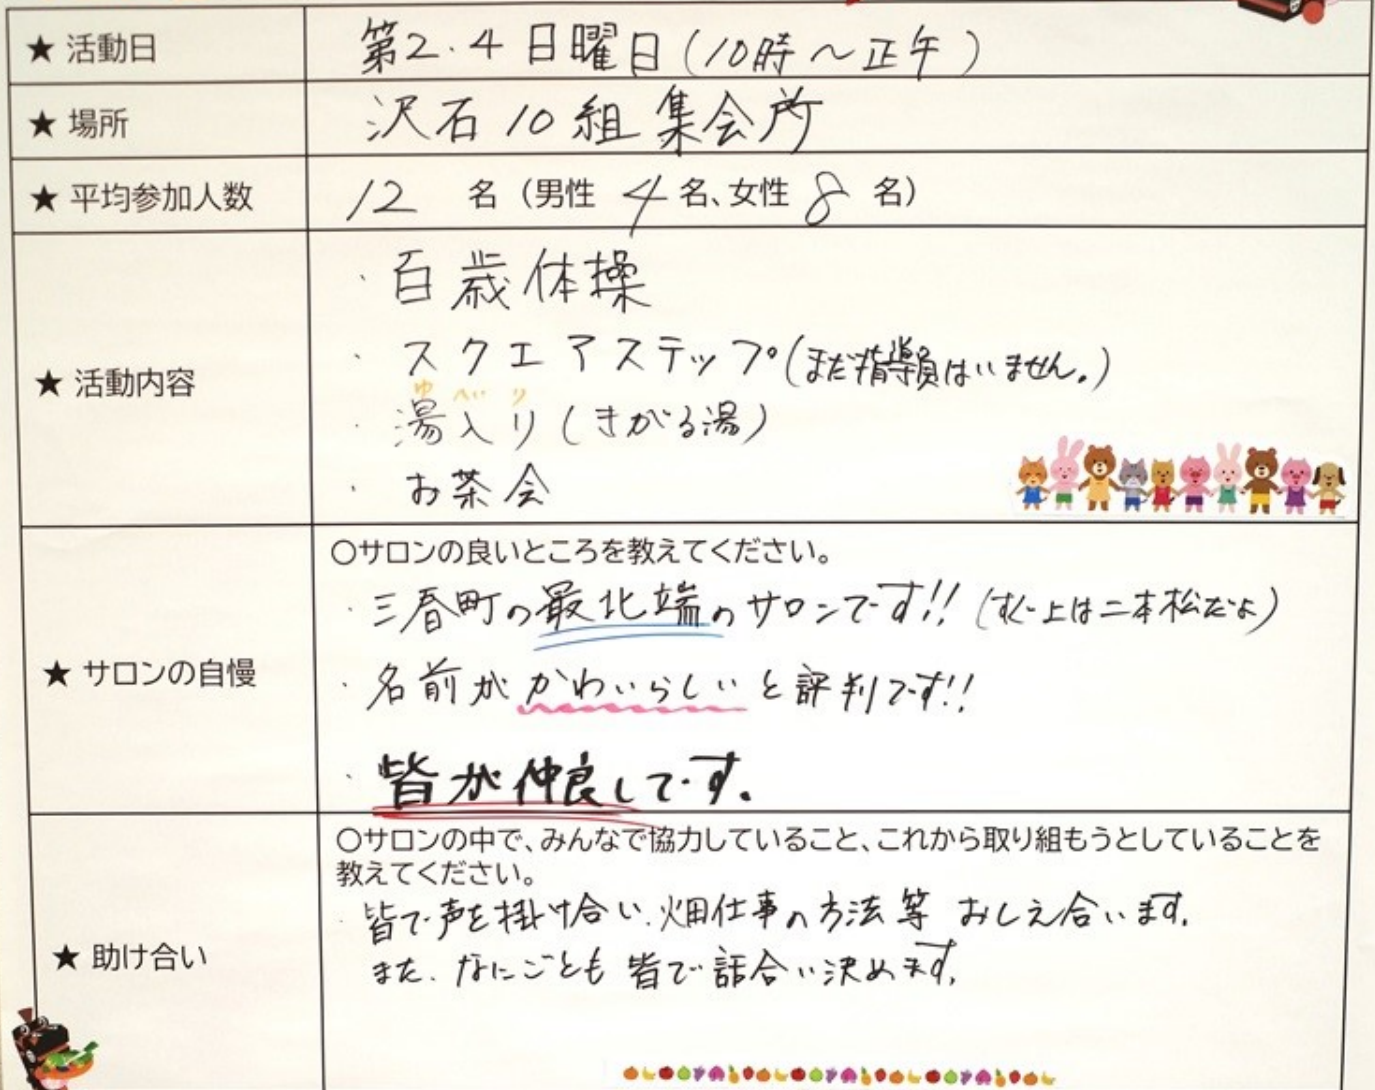 ★ 活動日
第2.4日曜日(10時～正午)
★ 場所
沢石10組集会所
★ 平均参加人数
12 名（男性 4 名、女性 8 名）
★ 活動内容
・百歳体操
・スクエアステップ(まだ指導員はいません。)
ゆ べい り
・湯入り(きがる湯)
・お茶会
★ サロンの自慢
〇サロンの良いところを教えてください。
・三春町の最北端のサロンです!!(すぐ上は二本松だよ)
・名前がかわいらしいと評判です!!
・皆が仲良しです。
★ 助け合い
〇サロンの中で、みんなで協力していること、これから取り組もうとしていることを
教えてください。
・皆で声を掛け合い、畑仕事の方法等 おしえ合います。
また、なにごとも 皆で話合い決めます。